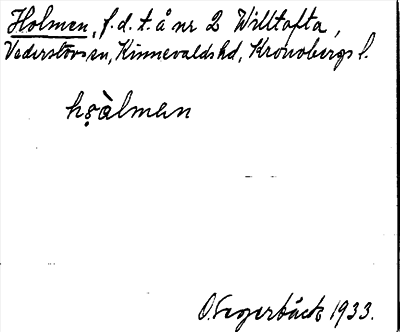 Holmen, f.d.t. å nr 2 Willtofta,
Väderstors sn, Kinnevalds hd, Kronobergs l.
họ̀lmen
O. Segerbäck 1933.